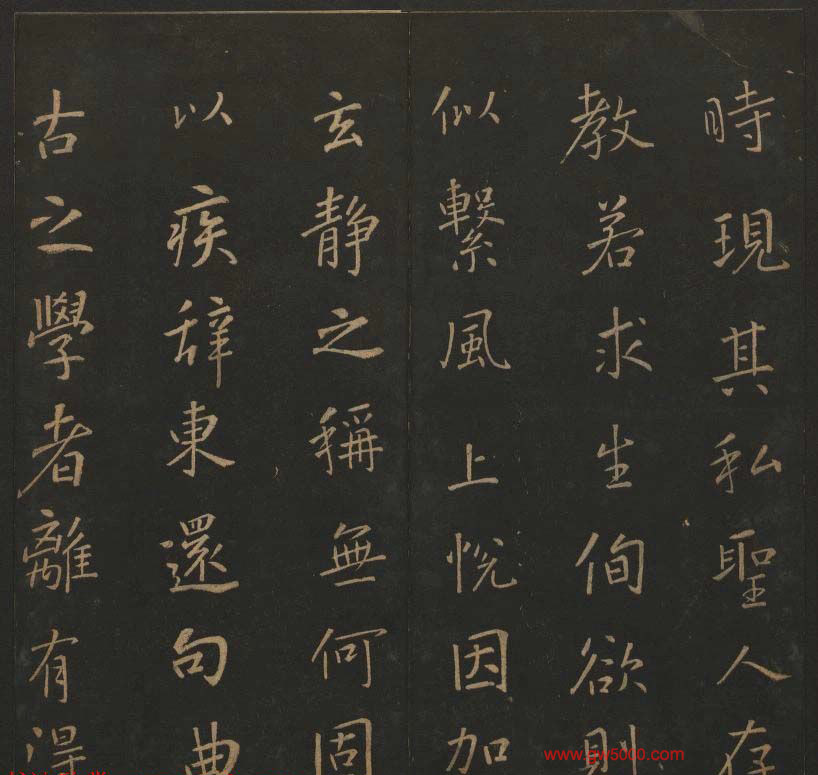 時現其私聖人存
教若求生徇欲則
似繫風 上悅因加
玄靜之稱無何固
以疾辭東還句曲
古之學者離有得
www.gw5000.com